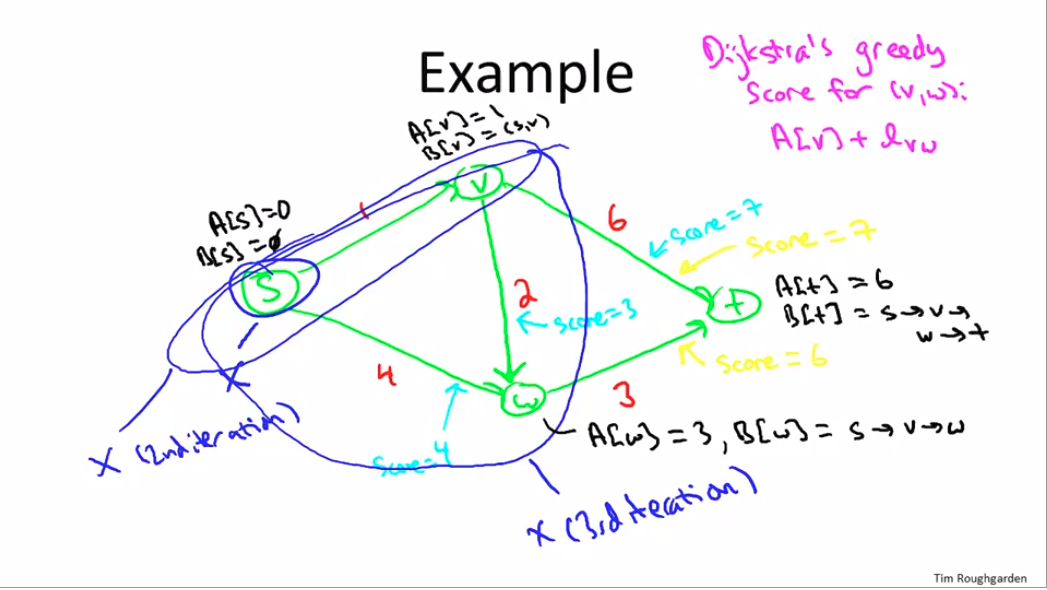 Example
Dijkstra's greedy
score for (v,w):
A[v] + lvw
A[v] = 1
B[v] = (s,v)
A[s]=0
B[s] = ∅
1
v
6
score = 7
score = 7
s
2
score=3
t
A[t] = 6
B[t] = s→v→
w→t
score = 6
4
score=4
w
3
A[w] = 3, B[w] = s→v→w
X
X (2nd iteration)
X (3rd iteration)
Tim Roughgarden